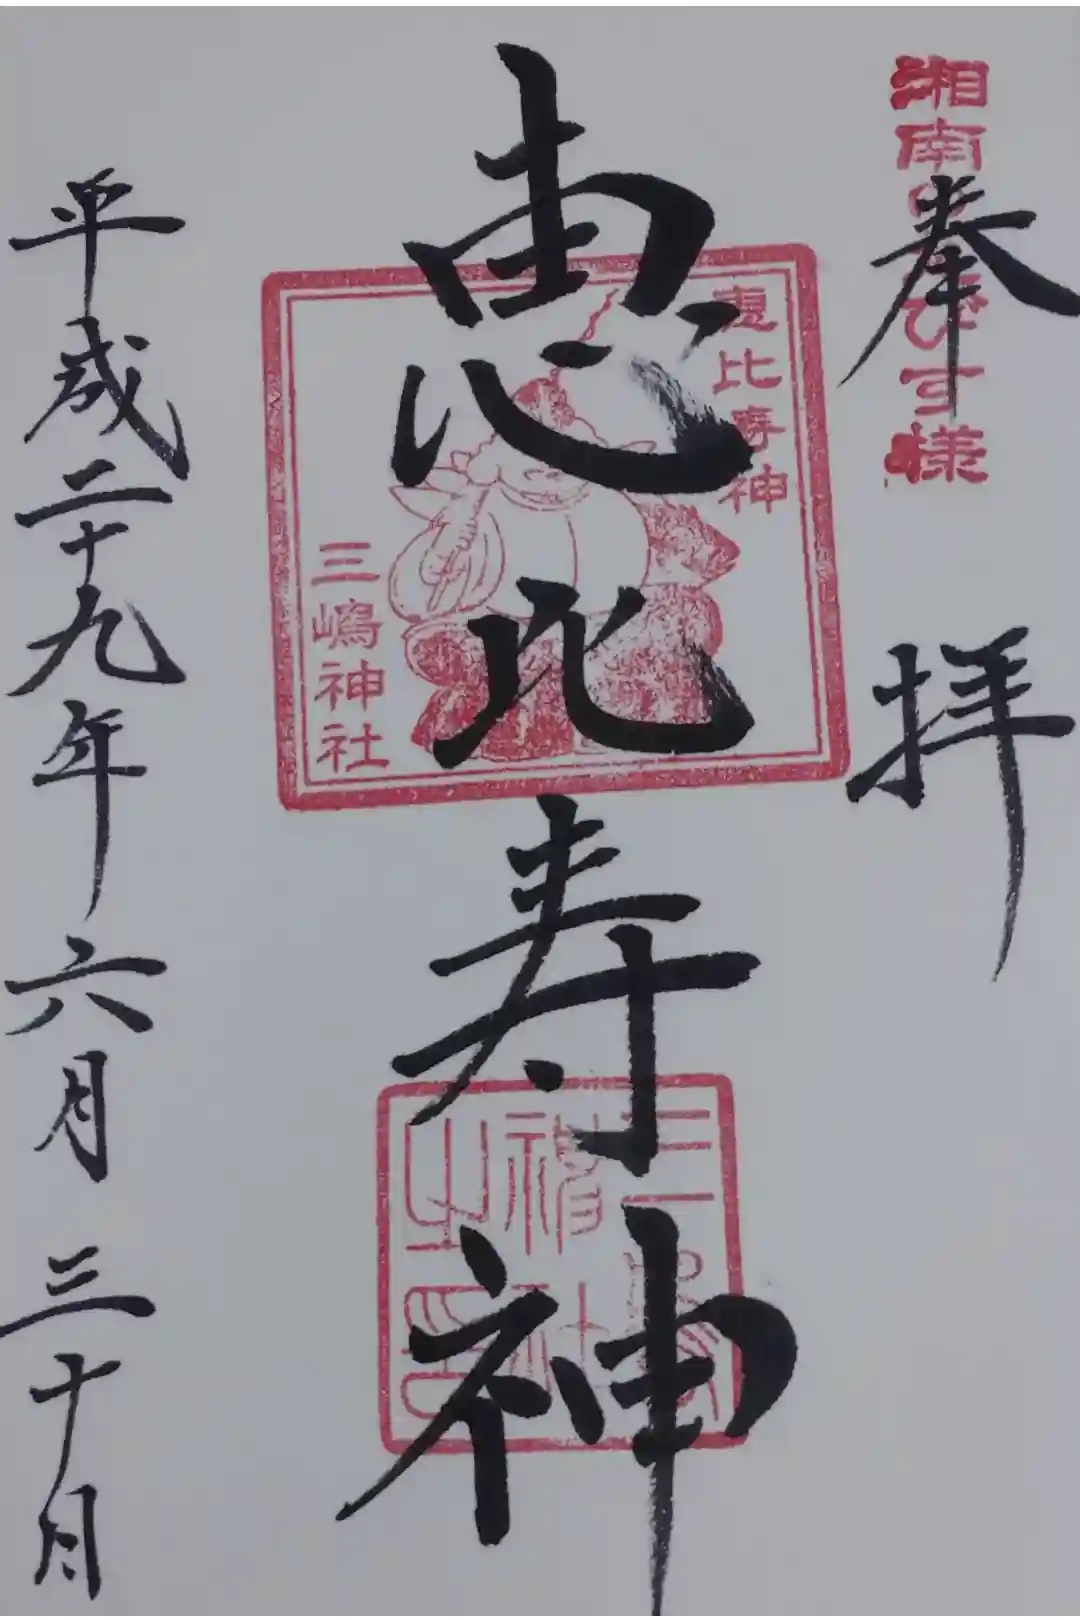 湘南えびす様
奉拝
恵比寿神
恵比寿神
三嶋神社
三嶋神社之印
平成二十九年六月三十日